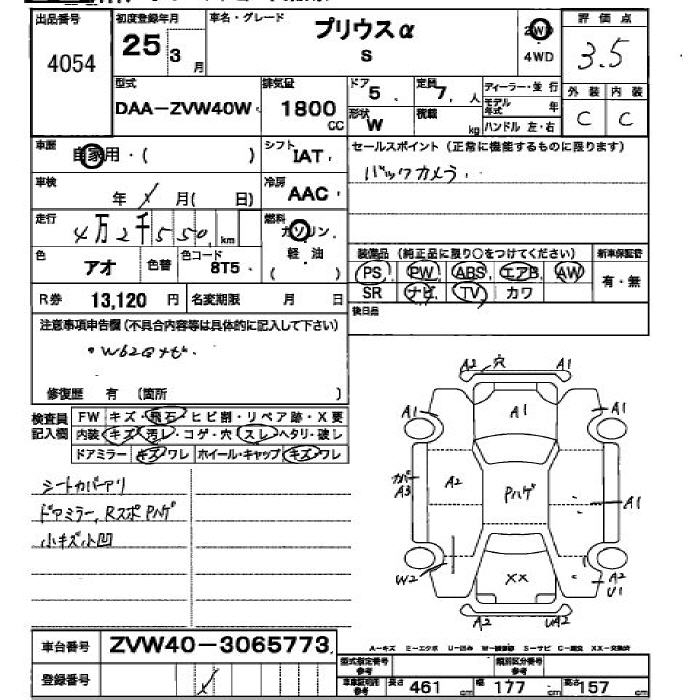 出品番号 4054
初度登録年月 25 3 月
車名・グレード プリウスα S
2WD 4WD
評価点 3.5
外装 内装
C C
型式 DAA-ZVW40W
排気量 1800 CC
ドア 5
定員 7 人
形状 W
積載 kg
ディーラー・並行
モデル年式 年
ハンドル 左・右
車歴 自家用・( )
シフト IAT
セールスポイント(正常に機能するものに限ります)
バックカメラ.
車検 年 月( 日)
冷房 AAC
走行 4万2千550 km
燃料 ガソリン 軽・油 ( )
色 アオ 色替 色コード 8T5
装備品(純正品に限り○をつけてください) 新車保証書
PS PW ABS エアB AW 有・無
SR ナビ TV カワ
R券 13,120 円 名変期限 月 日
後日品
注意事項申告欄(不具合内容等は具体的に記入して下さい)
・W62Gナビ.
修復歴 有 (箇所 )
検査員記入欄
FW キズ・飛石・ヒビ割・リペア跡・X要
内装 キズ・汚レ・コゲ・穴・スレ・ヘタリ・破レ
ドアミラー キズ・ワレ ホイール・キャップ キズ・ワレ
シートカバーアリ
ドアミラー, Rスポ Pハゲ
小キズ小凹
A2 穴 A1
A1 A1 A1
カバ A3 A2 Pハゲ A1
W2 XX A2 U1
A2 UA2
A-キズ E-エクボ U-凹み W-補修跡 S-サビ C-腐食 XX-交換済
車台番号 ZVW40-3065773
登録番号
型式指定番号 参考 類別区分番号 参考
車車証明用 参考 長さ 461 cm 幅 177 cm 高さ 157 cm